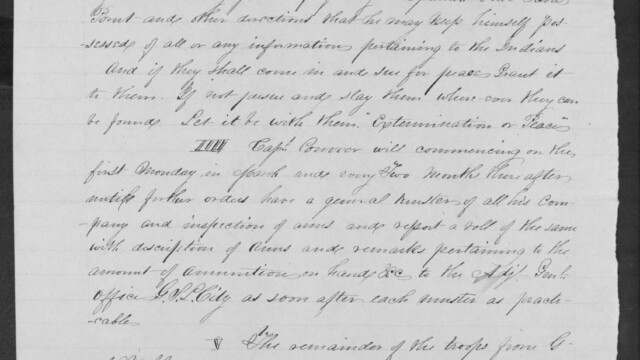 Point and other directions that he may keep himself pos-
sessed of all or any information pertaining to the Indians
And if they shall come in and sue for peace Grant it
to them. If not pursue and slay them where ever they can
be found. Let it be with them "Extermination or Peace"
IIII Captn Conover will commencing on the
first Monday in March and every Two Months there after
until further orders have a general muster of all his com-
pany and inspection of arms and report a roll of the same
with discription of Arms and remarks pertaining to the
amount of ammunition on hand &c to the Adj. Genls
office G.S.L. City as soon after each muster as practi-
cable
V The remainder of the troops from G